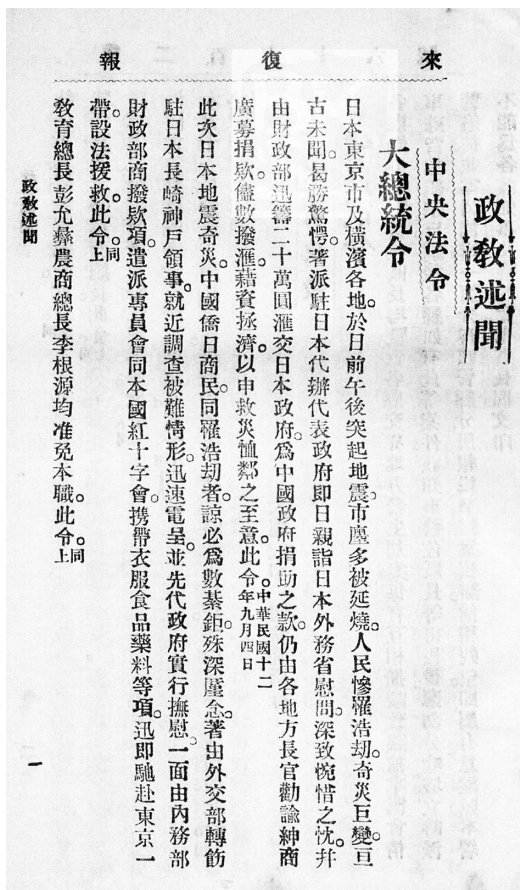 來復報
政教述聞
中央法令
大總統令
日本東京市及橫濱各地。於日前午後突起地震。市廛多被延燒。人民慘罹浩劫。奇災巨變。亘
古未聞。曷勝驚愕。著派駐日本代辦代表政府即日親詣日本外務省慰問。深致惋惜之忱。幷
由財政部迅籌二十萬圓滙交日本政府。爲中國政府捐助之款。仍由各地方長官勸諭紳商
廣募捐欵。儘數撥滙。藉資拯濟。以申救災恤鄰之至意。此令。中華民國十二年九月四日
此次日本地震奇災。中國僑日商民。同罹浩劫者。諒必爲數綦鉅。殊深廑念。著由外交部轉飭
駐日本長崎神戶領事。就近調查被難情形。迅速電呈。並先代政府實行撫慰。一面由內務部
財政部商撥欵項。遣派專員會同本國紅十字會。携帶衣服食品藥料等項。迅即馳赴東京一
帶。設法援救。此令。同上
教育總長彭允彝農商總長李根源均准免本職。此令。同上
政教述聞
一